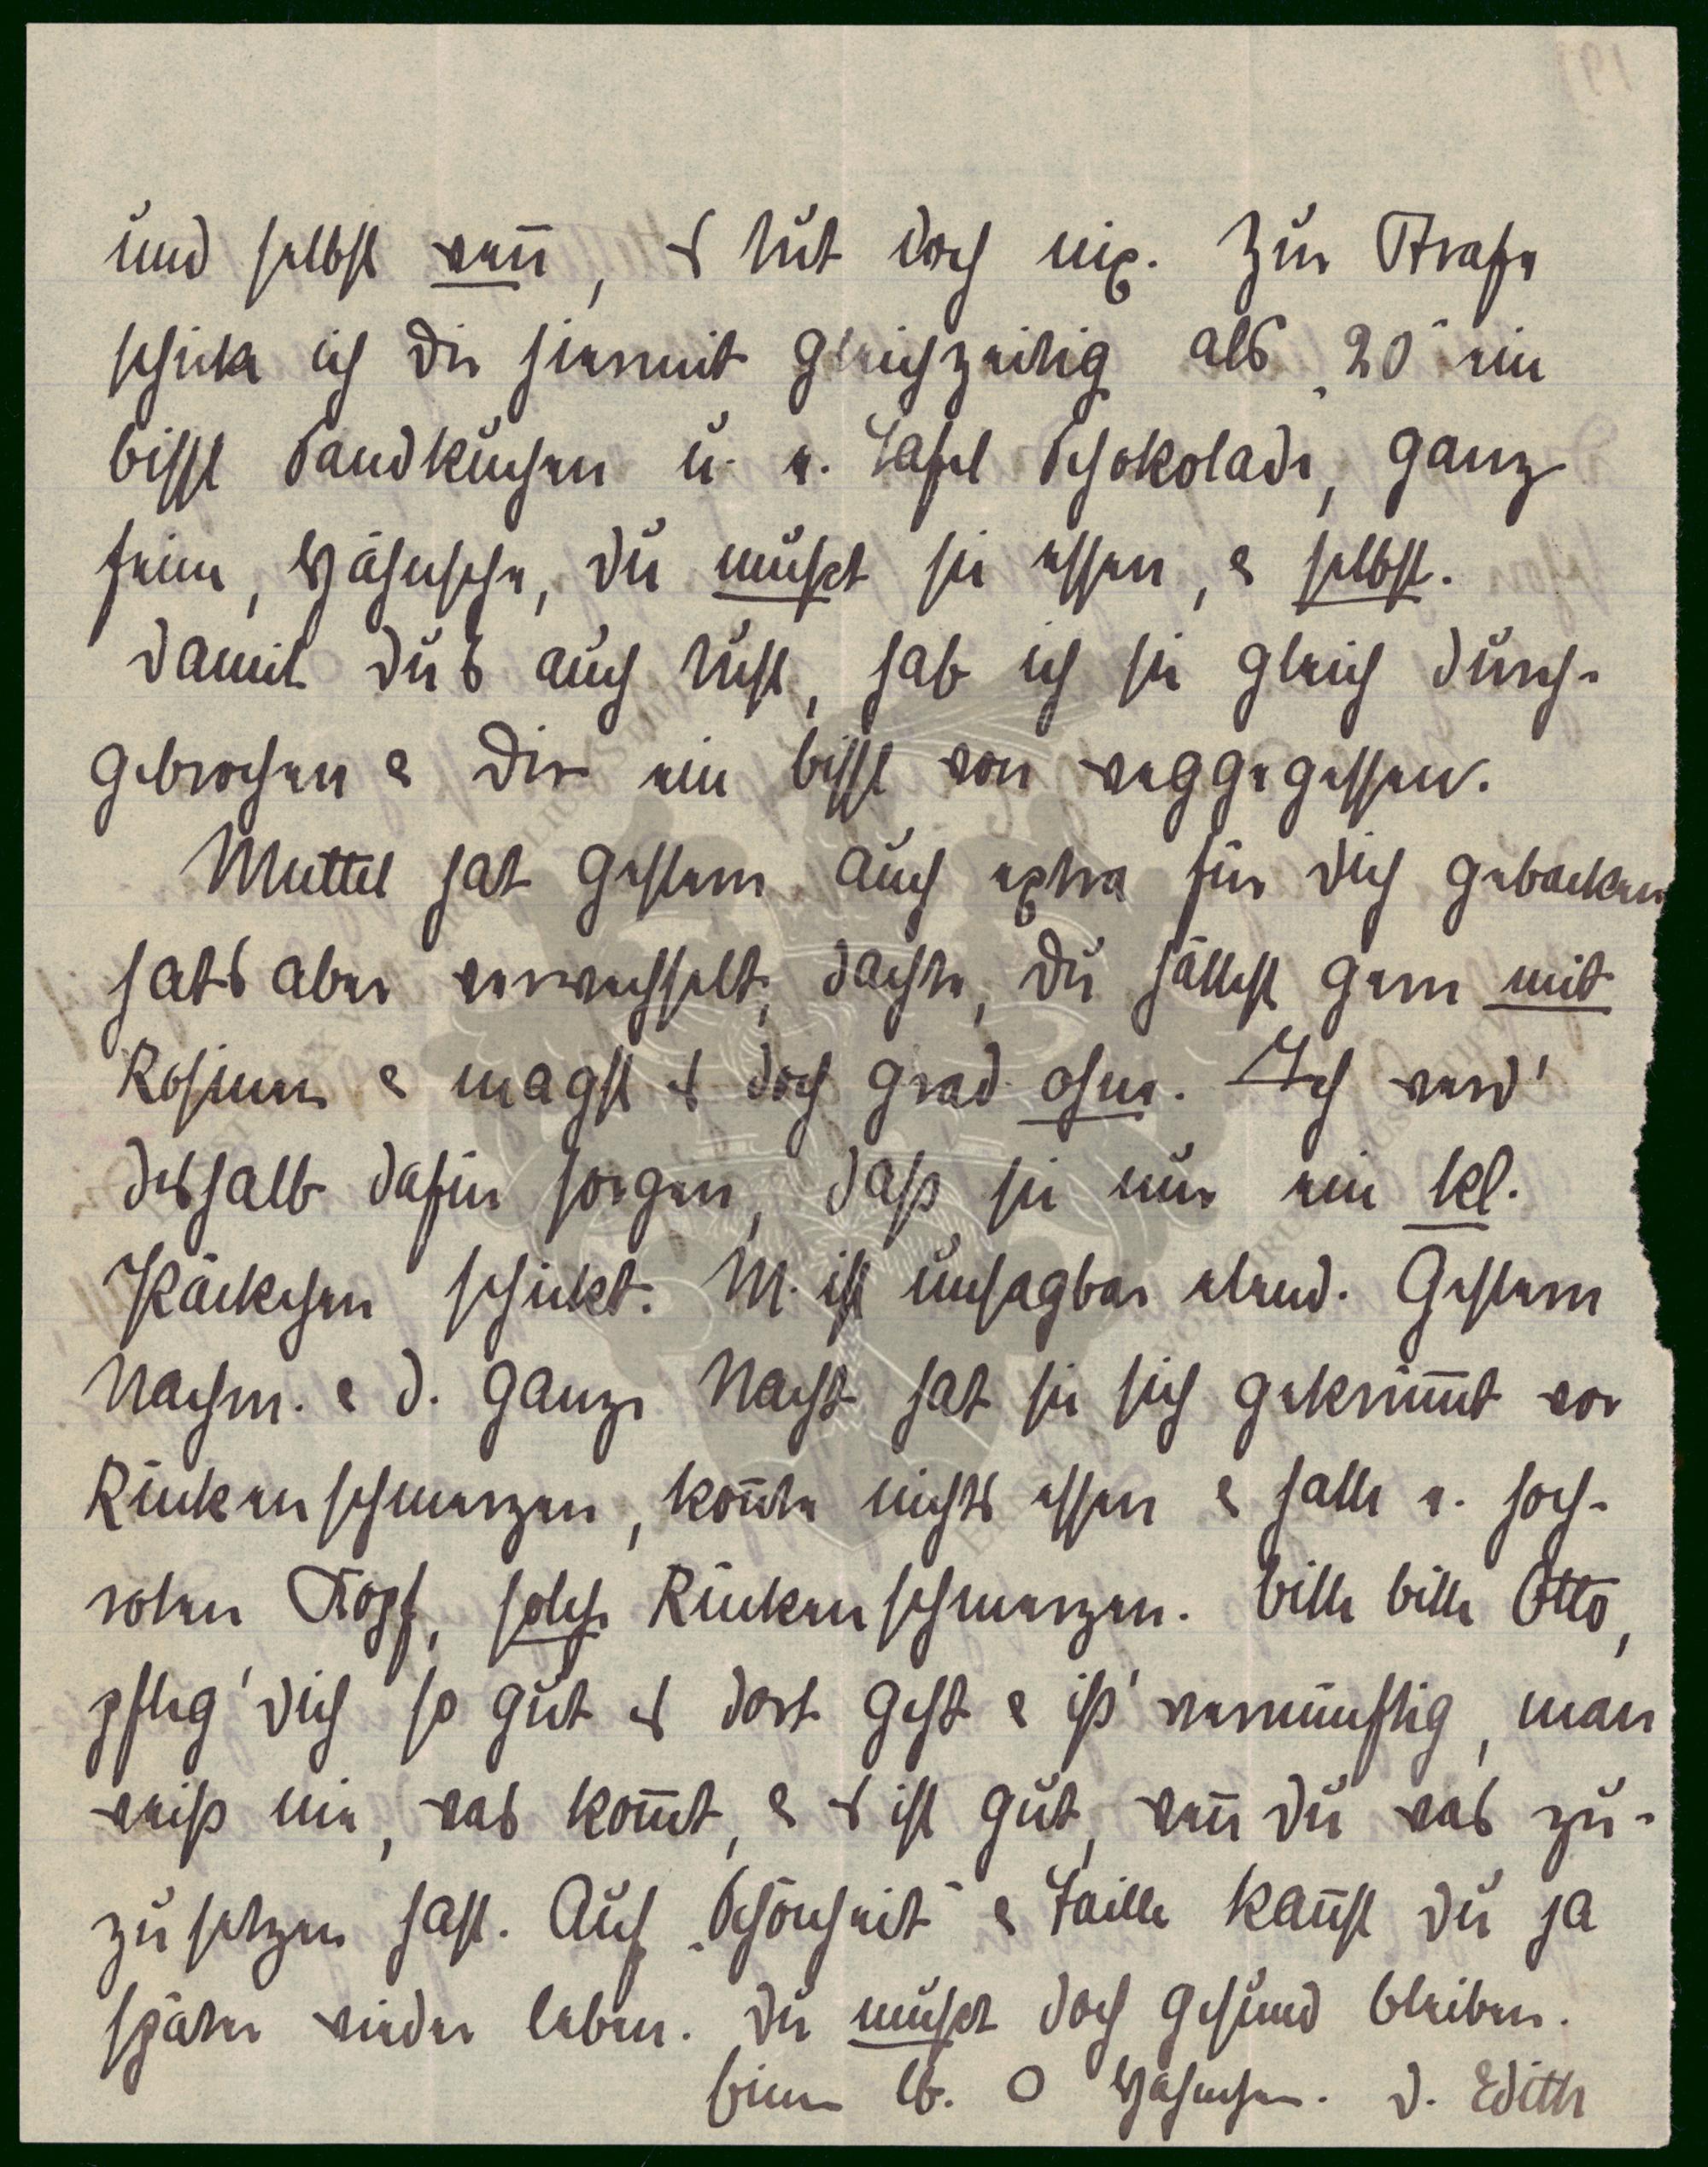 und selbst wenn̄, s tut doch nix. Zur Strafe
schicke ich Dir hiermit gleichzeitig als „20“ ein
bissl Sandkuchen u. e. Tafel Schokolade, ganz
feine, Hähnsche, du mußt sie essen, & selbst.
Damit Du's auch tust, hab ich sie gleich durch-
gebrochen & Dir ein bissl von weggegessen.
Muttel hat gestern auch extra für Dich gebacken
hats aber verwechselt, dachte, Du hättest gern mit
Rosinen & magst s doch grad ohne. Ich werd'
deshalb dafür sorgen, daß sie nur ein kl.
Päckchen schickt. M. ist unsagbar elend. Gestern
Nachm. & d. ganze Nacht hat sie sich gekrüm̄t vor
Rückenschmerzen, kon̄te nichts essen & hatte e. hoch-
roten Kopf, solche Rückenschmerzen. Bitte bitte Otto,
pfleg' Dich so gut s dort geht & iß' vernünftig, man
weiß nie, was kom̄t, & s ist gut, wen̄ Du was zu-
zusetzen hast. Auf „Schönheit“ & Taille kan̄st Du ja
später wieder leben. Du mußt doch gesund bleiben.
lb. O D. Edith